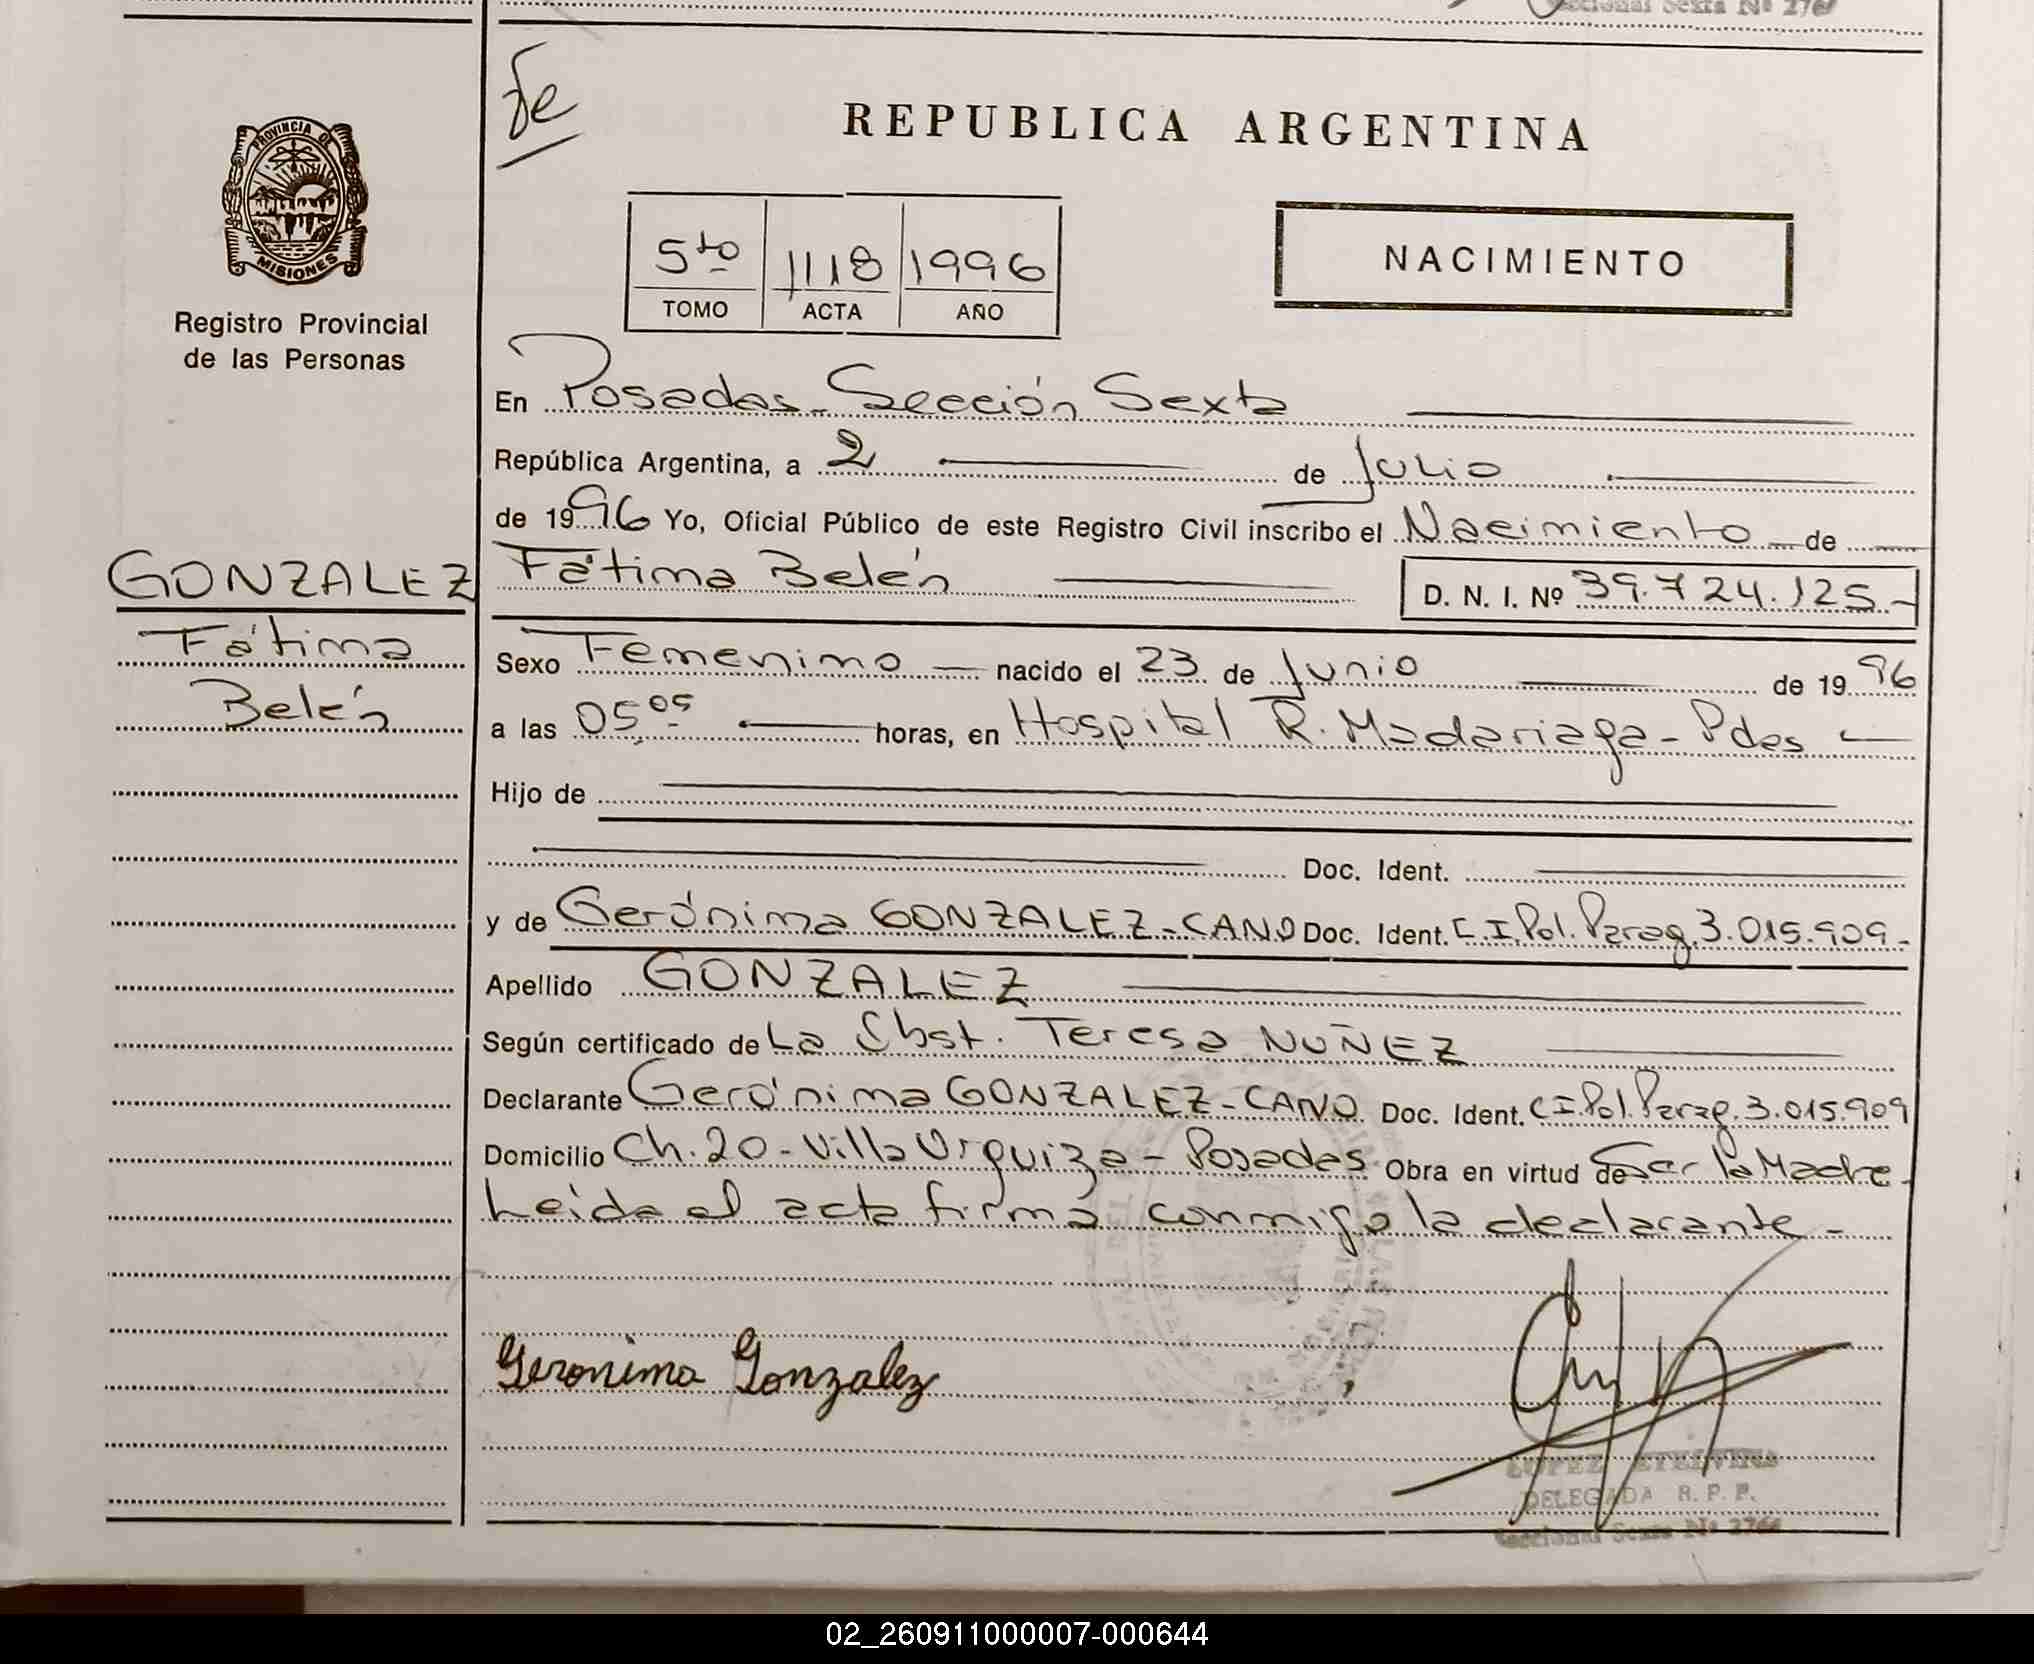 Seccional Sexta Nº 2764
Fe
REPUBLICA ARGENTINA
PROVINCIA DE
MISIONES
Registro Provincial
de las Personas
5to 1118 1996
TOMO ACTA AÑO
NACIMIENTO
En Posadas - Sección Sexta
República Argentina, a 2 de Julio
de 1996 Yo, Oficial Público de este Registro Civil inscribo el Nacimiento de
GONZALEZ
Fátima
Belén
Fátima Belén D. N. I. Nº 39.724.125.-
Sexo Femenino nacido el 23 de Junio de 1996
a las 05,05 horas, en Hospital R. Madariaga - Pdas
Hijo de
Doc. Ident.
y de Gerónima GONZALEZ-CANO Doc. Ident. C.I.Pol.Parag.3.015.909.-
Apellido GONZALEZ
Según certificado de La Obst. Teresa NUÑEZ
Declarante Gerónima GONZALEZ-CANO Doc. Ident. C.I.Pol.Parag.3.015.909
Domicilio Ch.20 - Villa Urquiza - Posadas Obra en virtud de Ser la Madre.
Leída el acta firma conmigo la declarante -
Geronima Gonzalez
LOPEZ ETELVINA
DELEGADA R. P. P.
Seccional Sexta Nº 2764
02_260911000007-000644